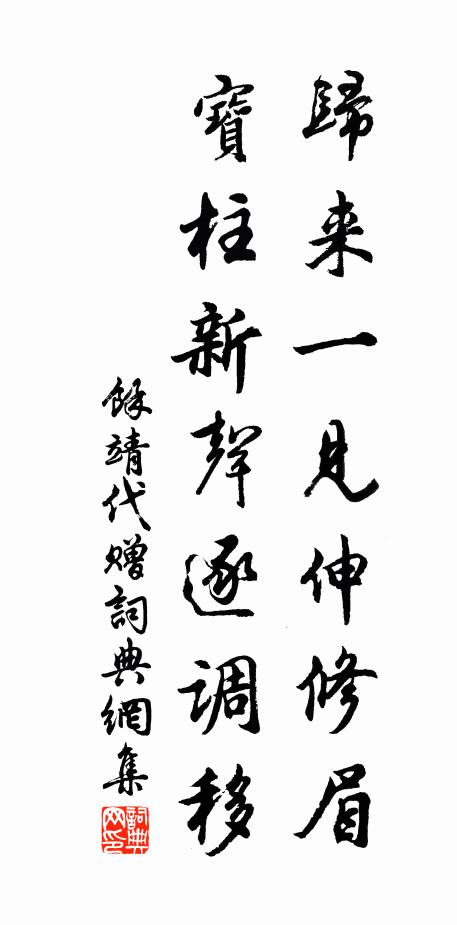 歸来一見伸修眉
寶柱新聲逐調移
餘靖代赠詞典網集
詞典网印